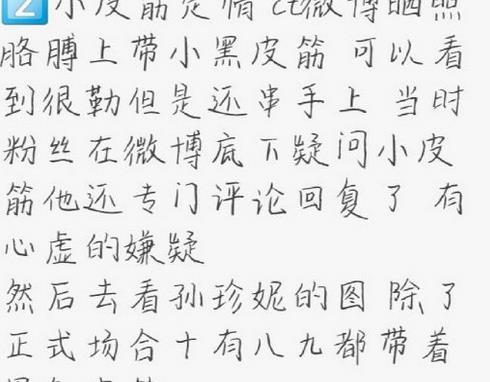 2 小皮筋定情 ct微博晒照
胳膊上带小黑皮筋 可以看
到很勒但是还串手上 当时
粉丝在微博底下疑问小皮
筋他还专门评论回复了 有
心虚的嫌疑
然后去看孙珍妮的图 除了
正式场合十有八九都带着